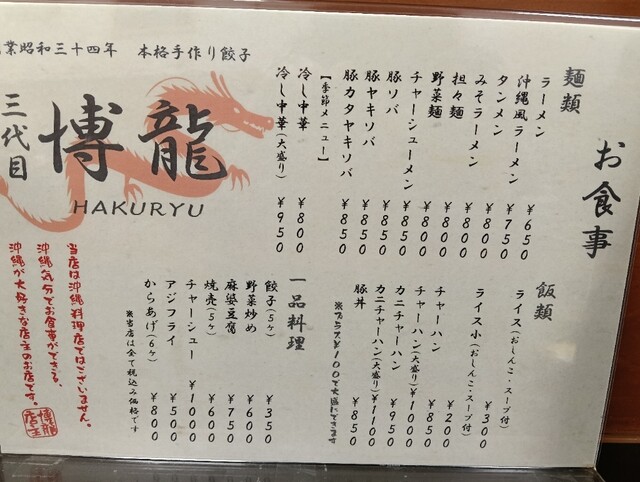 お食事
麺類
ラーメン ¥650
沖縄風ラーメン ¥750
タンメン ¥800
みそラーメン ¥800
担々麺 ¥800
野菜麺 ¥800
チャーシューメン ¥850
豚ソバ ¥850
豚ヤキソバ ¥850
豚カタヤキソバ ¥850
【季節メニュー】
冷し中華 ¥800
冷し中華(大盛り) ¥950
飯類
ライス(おしんこ・スープ付) ¥300
ライス小(おしんこ・スープ付) ¥200
チャーハン ¥850
チャーハン(大盛り) ¥1000
カニチャーハン ¥950
カニチャーハン(大盛り) ¥1100
豚丼 ¥850
※プラス¥100で大盛にできます
一品料理
餃子(5ヶ) ¥350
野菜炒め ¥600
麻婆豆腐 ¥750
焼売(5ヶ) ¥600
チャーシュー ¥1000
アジフライ ¥500
からあげ(6ヶ) ¥800
※当店は全て税込み価格です
業昭和三十四年 本格手作り餃子
三代目
博龍
HAKURYU
当店は沖縄料理店ではございません。
沖縄気分でお食事ができる、
沖縄が大好きな店主のお店です。
博龍
店主